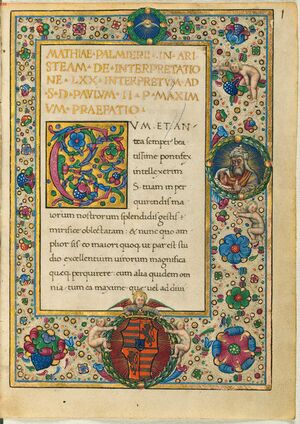 MATHIAE · PALMIERII · IN · ARI
STEAM · DE · INTERPRETATIO
NE · LXX · INTERPRETVM · AD
· S · D · PAVLVM · II · P · MAXIM
VM · PRAEFATIO ·
CVM · ET · AN
tea semper bea
tissime pontifex
intellexerim
S · tuam in per
quirendis ma
iorum nostrorum splendidis gestis
mirifice oblectaram : & nunc quo am
plior sis eo maiori quoq ut par est stu
dio excellentium uirorum magnifica
quoq perquirere : cum alia quidem om
nia / tum ea maxime que uel ad diui
1